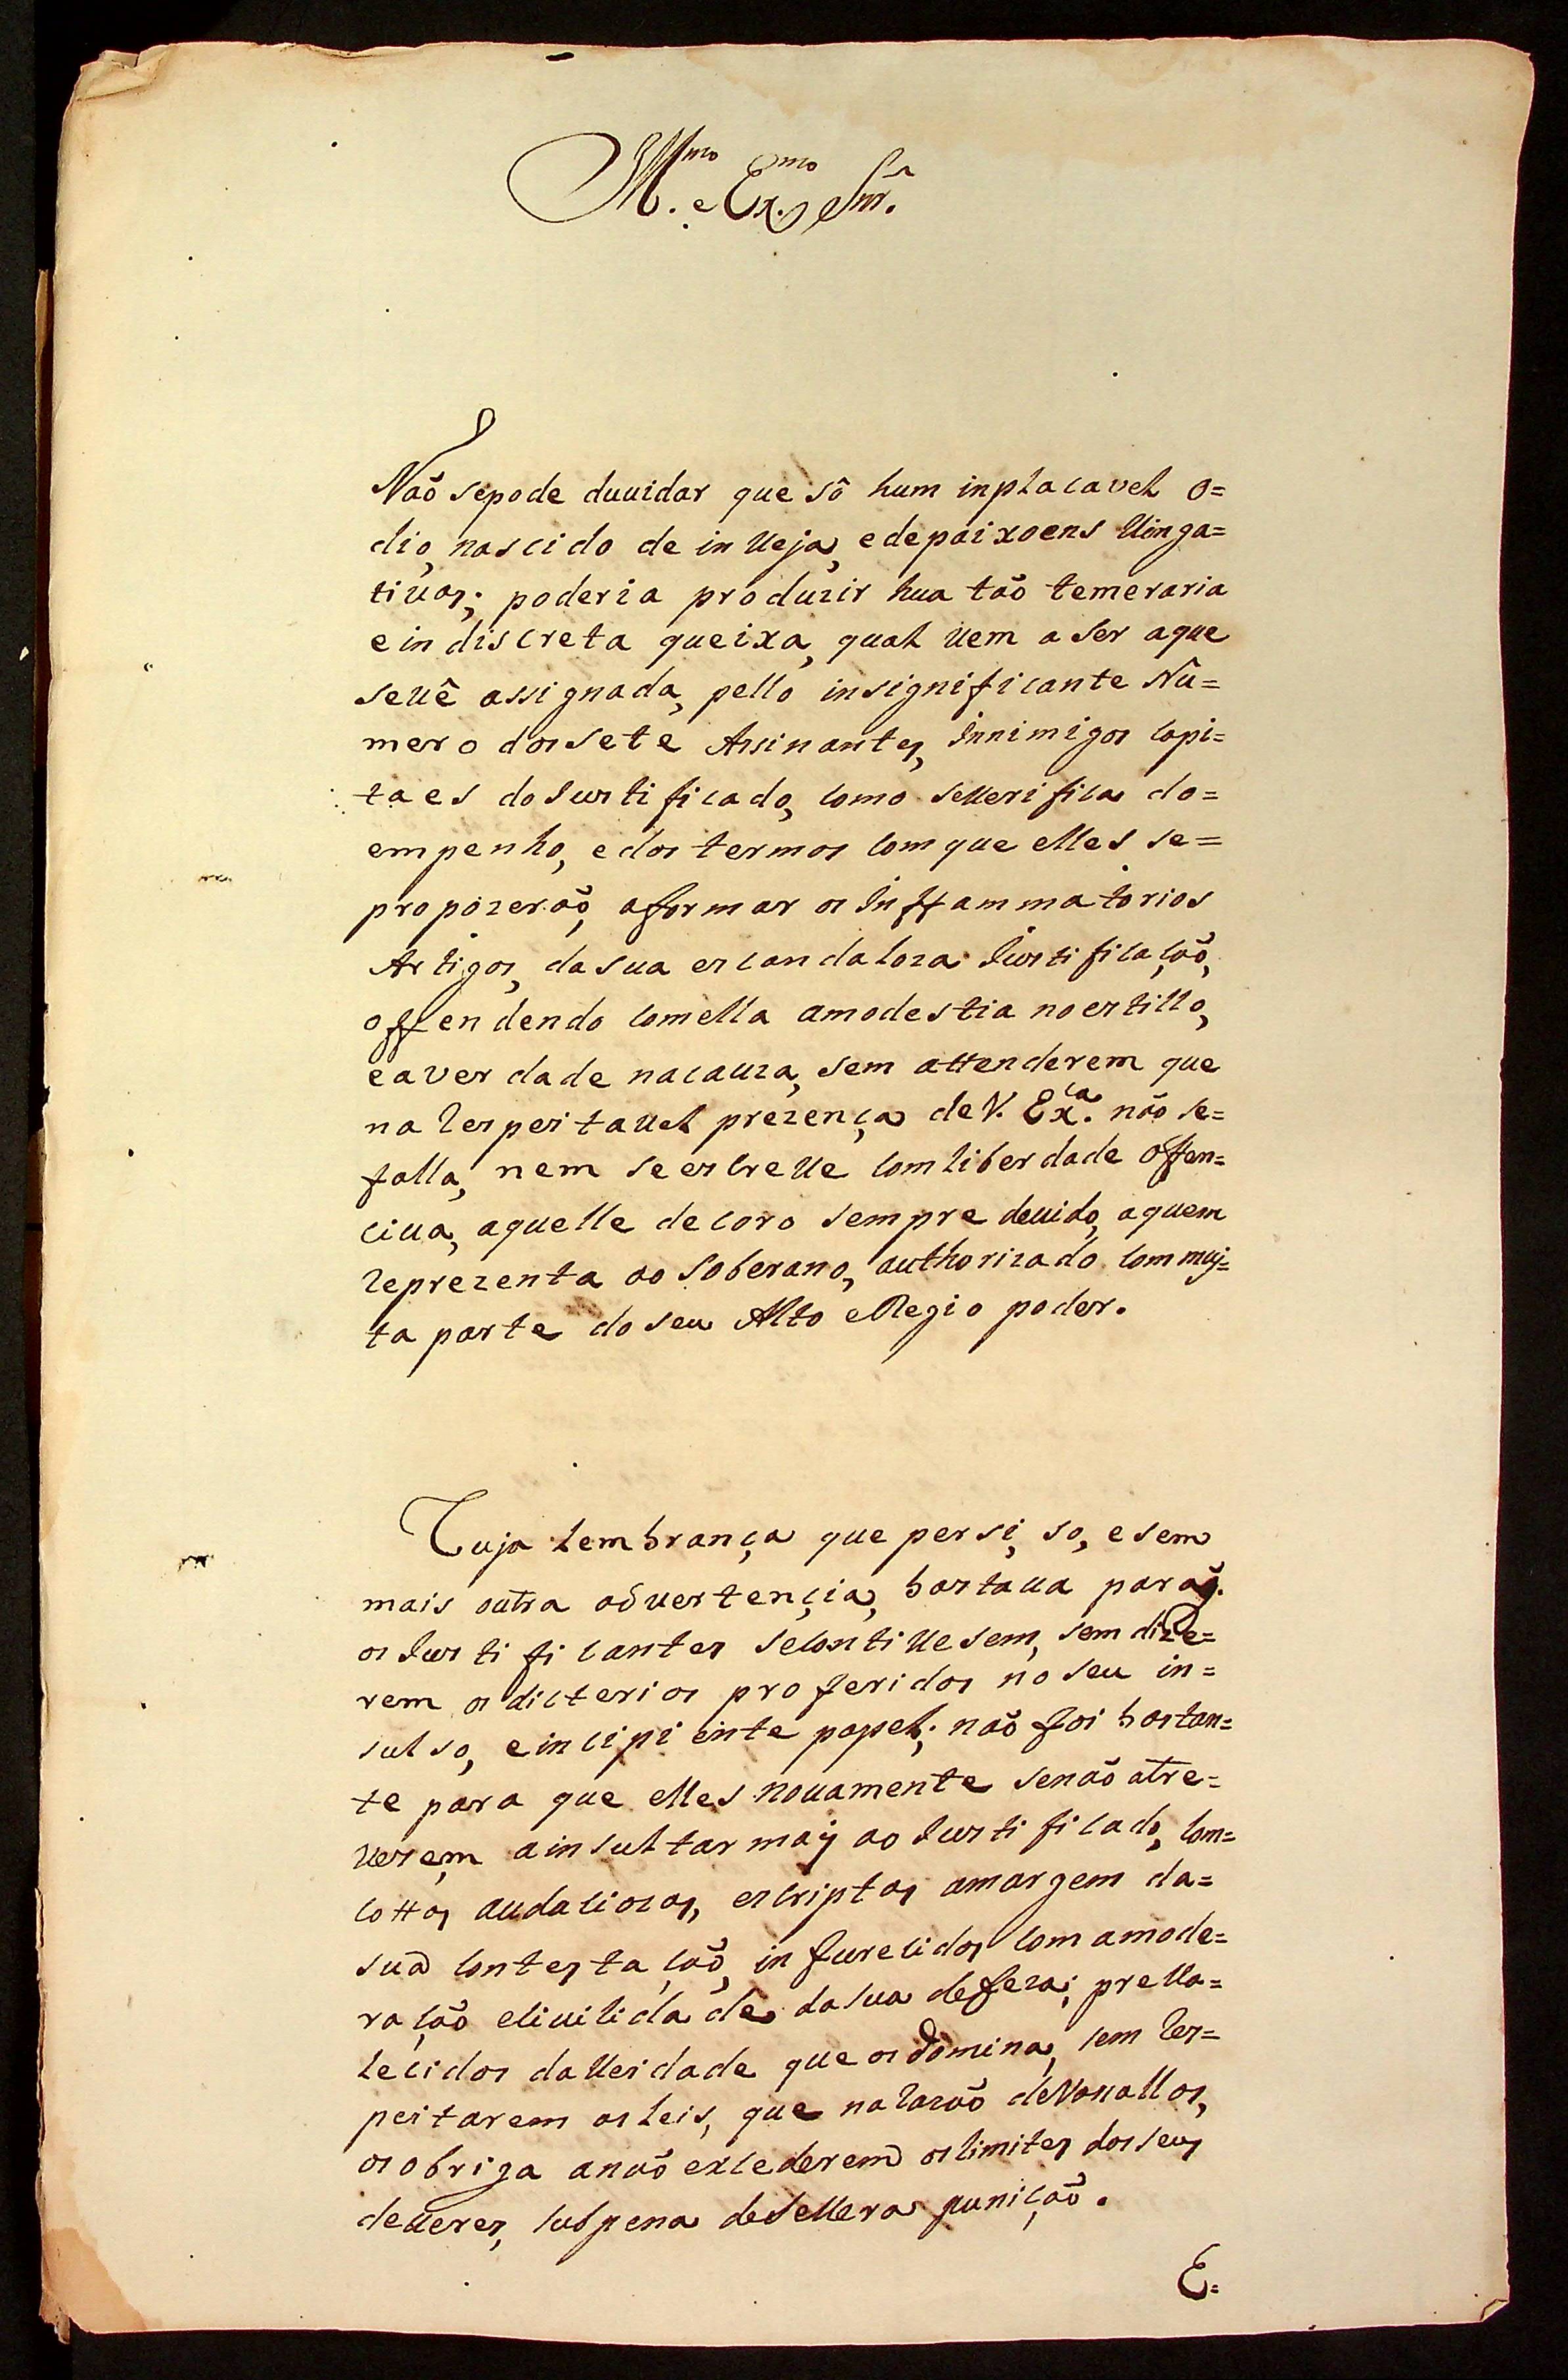 Ill.mo e Ex.mo Snr.
Naõ sepode duuidar que sô hum inplacavel o=
dio, nascido de inveja, edepaixoens Vinga=
tiuas; poderia produzir hua taõ temeraria
eindiscreta queixa, qual vem a ser aque
sevê assignada, pello insignificante Nû=
mero dos sete Assinantes, Innimigos capi=
taes do Iustificado, como severifica do=
empenho, edos termos comque elles se=
propozeraõ, aformar os Inffammatorios
Artigos, dasua escandaloza Iustificaçaõ,
offendendo comella amodestia noestillo,
eaverdade nacauza, sem attenderem que
na respeitavel prezença deV. Ex.ca não se=
falla, nem seescreve comliberdade offen=
ciua, aquelle decoro sempre deuido, aquem
reprezenta ao Soberano, authorizado com muj=
ta parte do seu Alto eRegio poder.
Cuja lembrança que persi, so, esem
mais outra advertençia, bastaua paraq.
os Iustificantes secontivesem, sem dize=
rem os dicterios proferidos no seu in=
sulso, eincipiente papel; naõ foi bastan=
te para que elles novamente senaõ atre=
verem ainsultar maiz ao Iustificado, com=
cottas audaciozas, escriptas amargem da=
sua contestaçaõ, infurecidos com amode=
raçaõ eciuilidade dasua defeza; preva=
lecidos daveidade que os domina, sem res=
peitarem as leis, que narazaõ deVassallos,
osobriga anaõ excederem oslimites dos seus
deveres, subpena deSevera puniçaõ.
E=